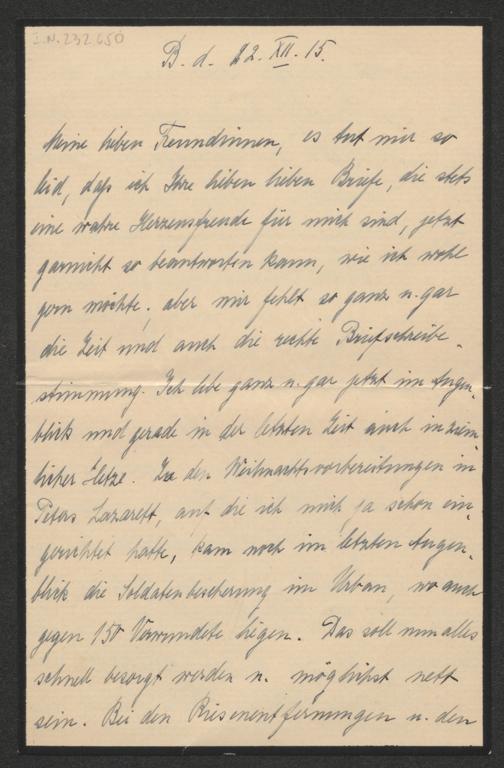 I.N. 232.650
B. d. 22. XII. 15.
Meine lieben Freundinnen, es tut mir so
leid, daß ich Ihre lieben lieben Briefe, die stets
eine wahre Herzensfreude für mich sind, jetzt
garnicht so beantworten kann, wie ich wohl
gern möchte, aber mir fehlt so ganz u. gar
die Zeit und auch die rechte Briefschreibe-
stimmung. Ich lebe ganz u. gar jetzt im Augen-
blick und gerade in der letzten Zeit auch in ziem-
licher Hetze. Zu den Weihnachtsvorbereitungen in
Peters Lazarett, auf die ich mich ja schon ein-
gerichtet hatte, kam noch im letzten Augen-
blick die Soldatenbescherung im Urban, wo auch
gegen 150 Verwundete liegen. Das soll nun alles
schnell besorgt werden u. möglichst nett
sein. Bei den Riesenentfernungen u. den